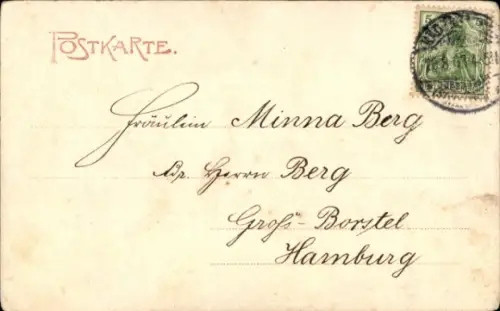 POSTKARTE.
5
Fräulein Minna Berg
Adr. Herrn Berg
Groß-Borstel
Hamburg